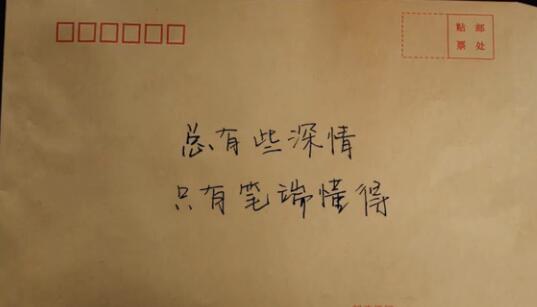 贴邮
票处
总有些深情
只有笔端懂得